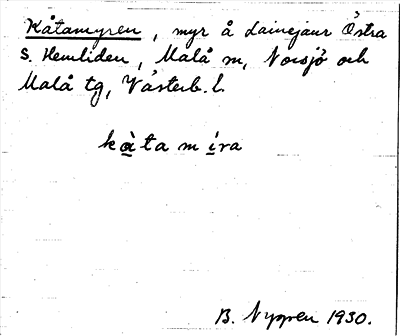 Kåtamyren, myr å Lainejaur Östra
S. Hemliden, Malå sn, Norsjö och
Malå tg, Västerb. l.
kàta mira
B. Nygren 1930.